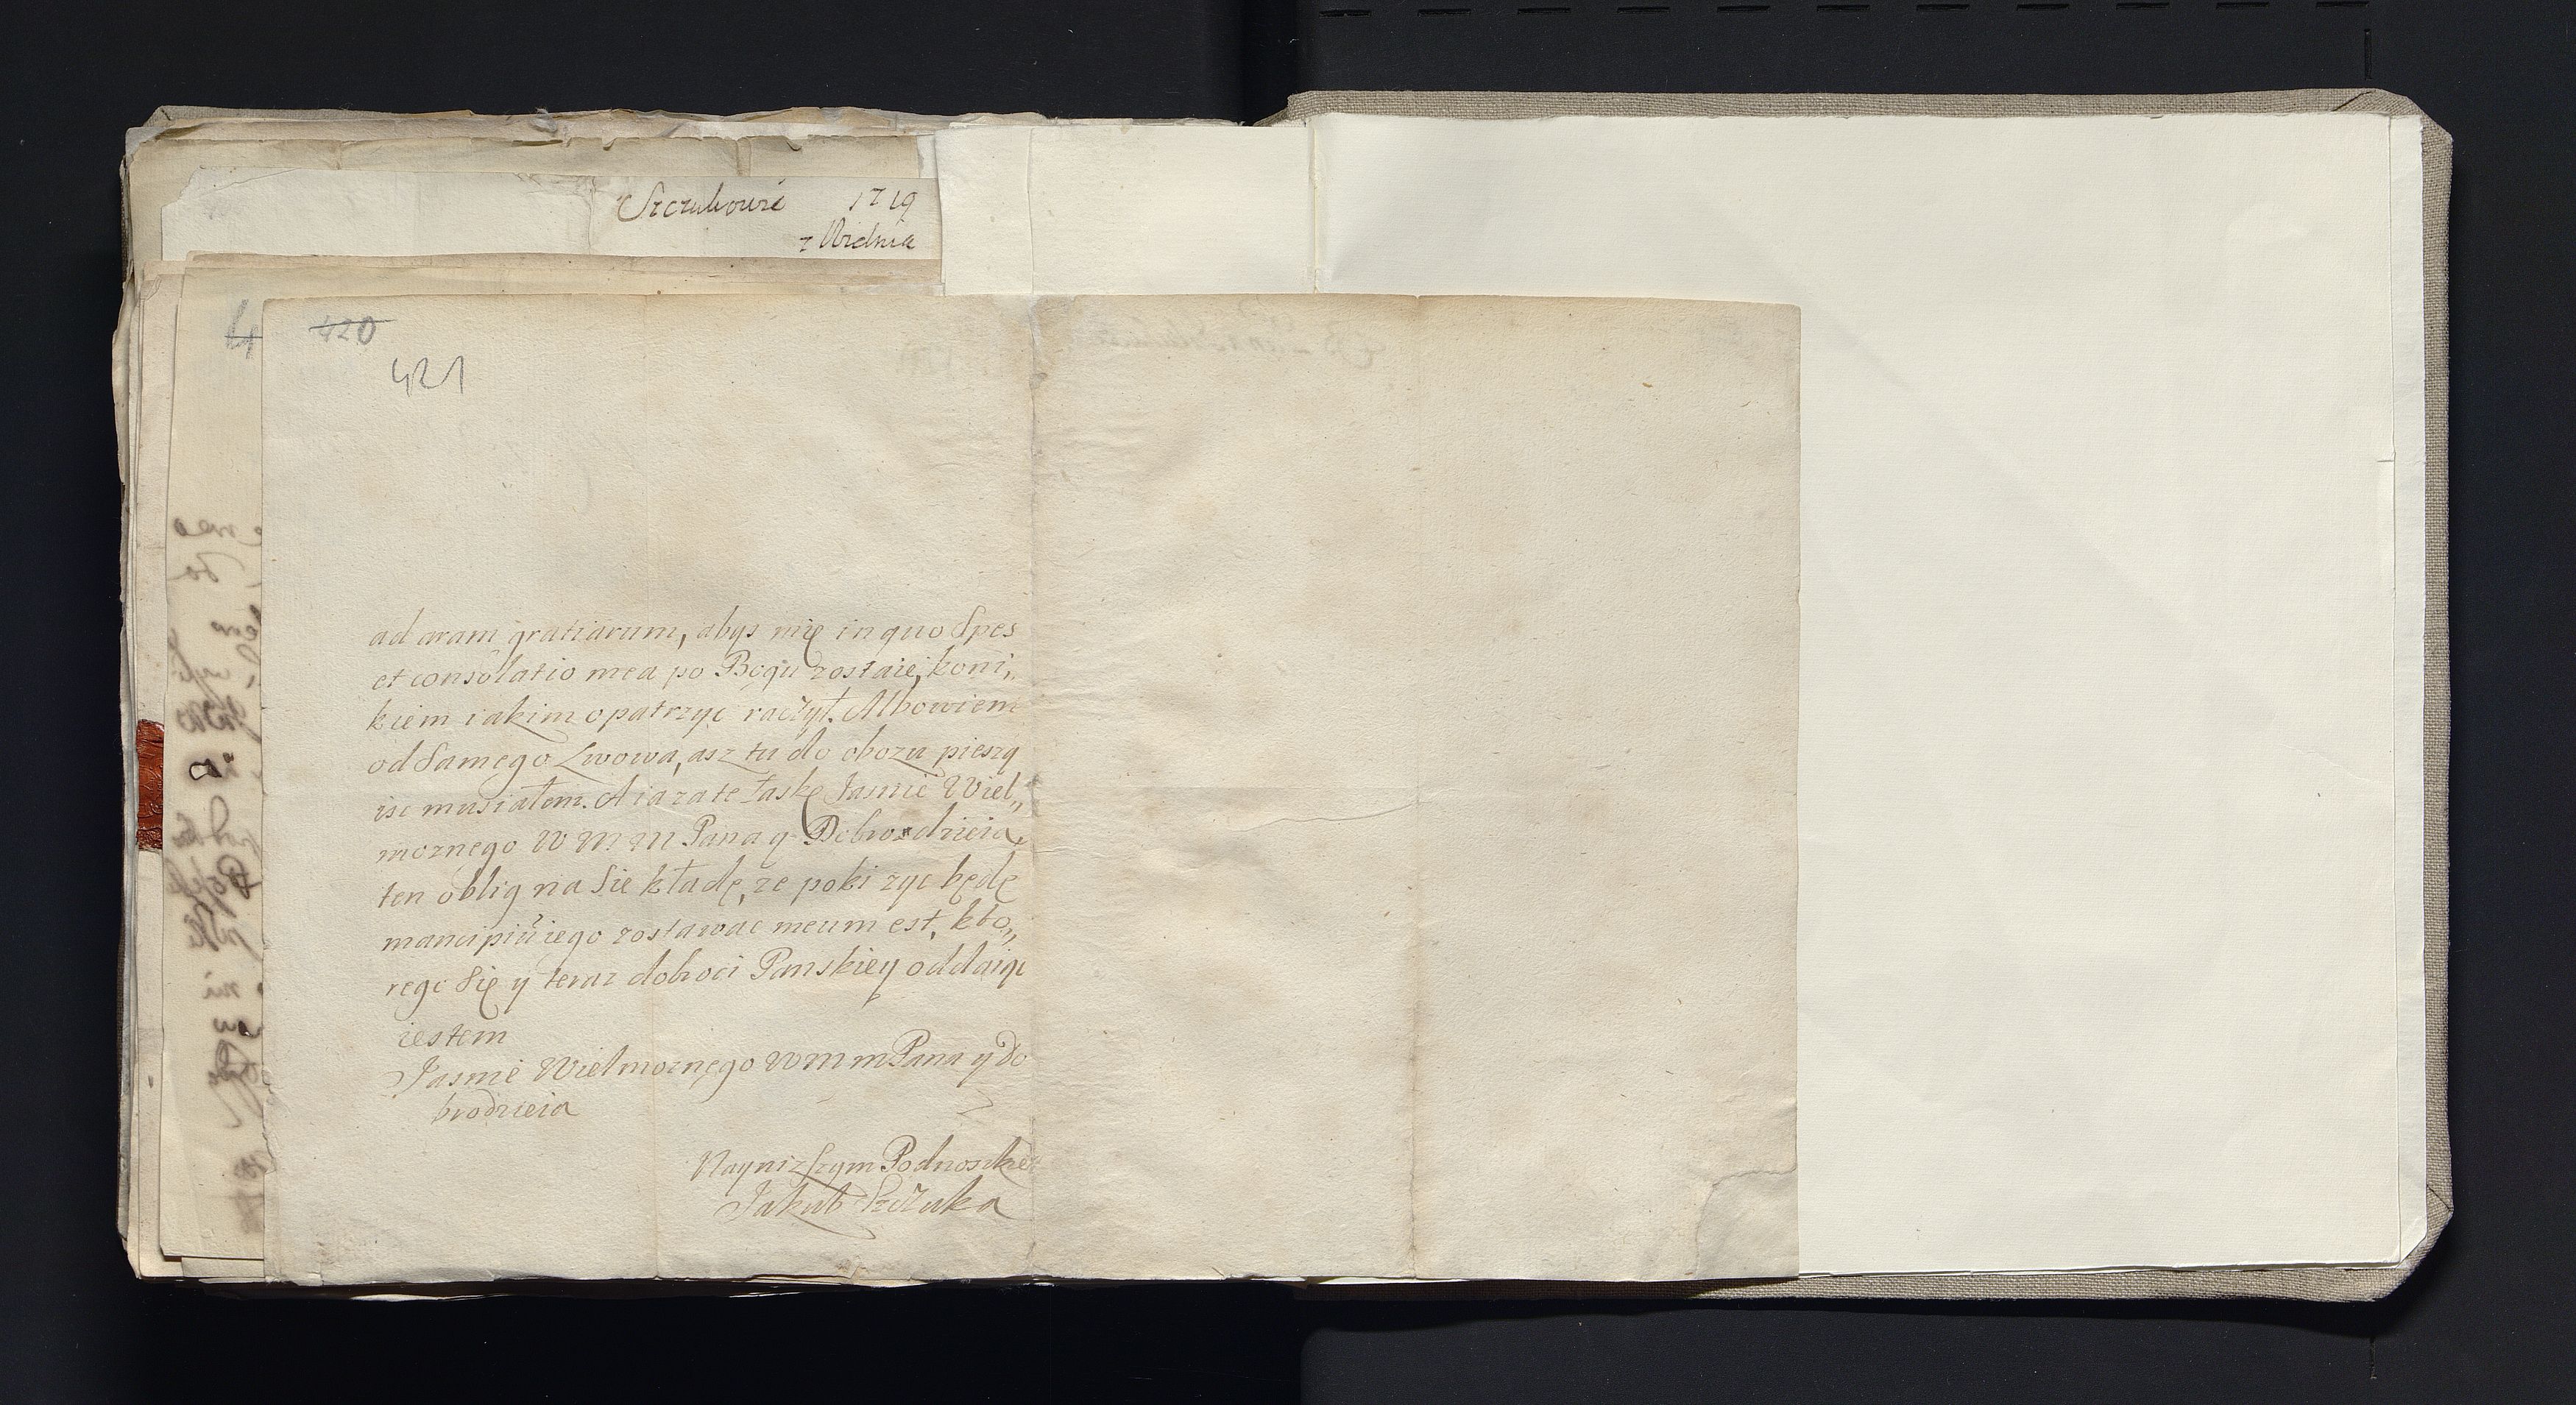 Szczukowie 1719
z Widnia
4
420
421
ad aram gratiarum, abys mię in quo Spes
et consolatio mea po Bogu zostaie, koni„
kiem iakim opatrzyc raczył. Albowiem
od Samego Lwowa, asz tu do obozu pieszą
isc musiałem. A ia za te łaskę Jasnie Wiel„
moznego W M M Pana y Dobrodzieia
ten oblig na Sie kładę, ze poki zyc będę
mancipiū iego zostawac meum est, kto„
rego Się y teraz dobroci Panskiey oddaiąc
iestem
Jasnie Wielmoznego W M m Pana y Do
brodzieia
Nayniższym Podnoszkiem
Jakub Szczuka